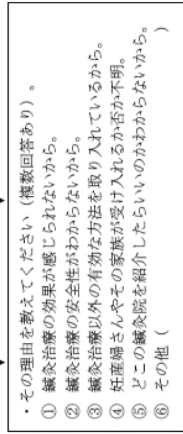 ・その理由を教えてください（複数回答あり）。
① 鍼灸治療の効果が感じられないから。
② 鍼灸治療の安全性がわからないから。
③ 鍼灸治療以外の有効な方法を取り入れているから。
④ 妊産婦さんやその家族が受け入れるか否か不明。
⑤ どこの鍼灸院を紹介したらいいのかわからないから。
⑥ その他（　　　　　　　　　　）